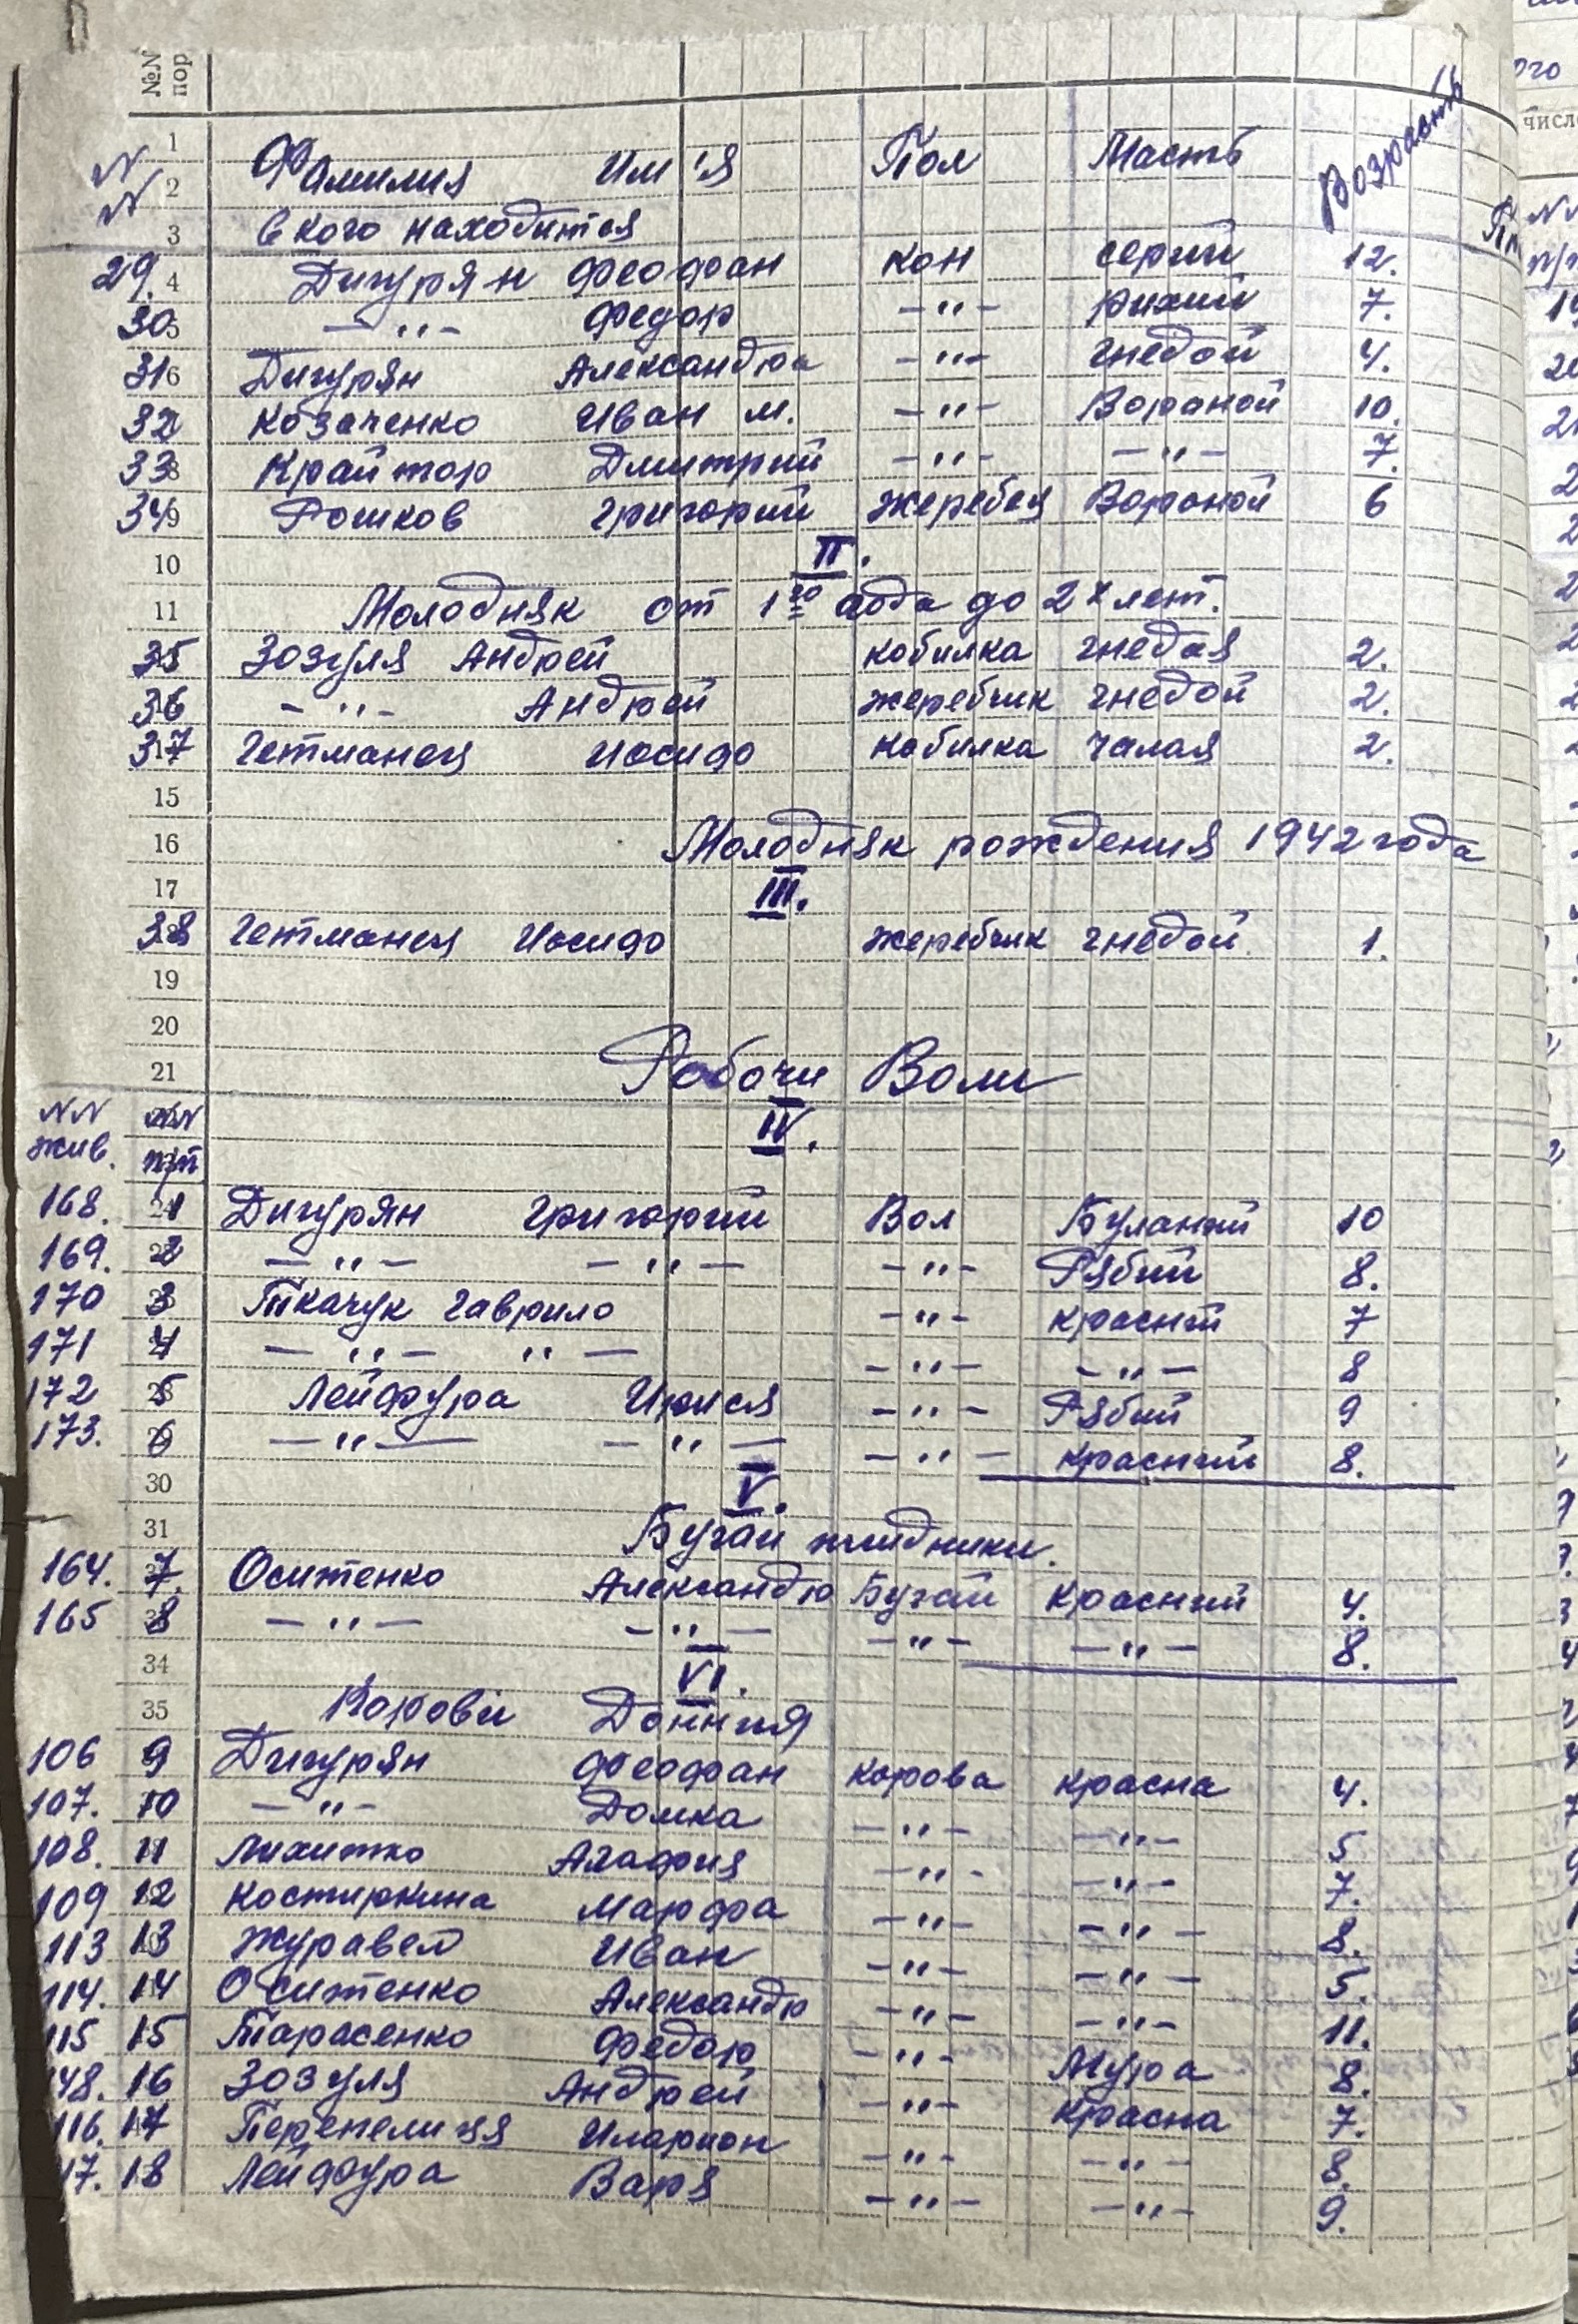 №№ пор
N Фамилия Им'я Пол Масть Возрасть
N в кого находится
29. Дигурян Феофан кон серий 12.
30 —"— Федор —"— рижий 7.
31 Дигурян Александра —"— гнедой 4.
32 Козаченко Иван М. —"— Вораной 10.
33 Крайтор Дмитрий —"— —"— 7.
34 Рошков Григорий жеребец Вороной 6
II.
Молодняк от 1го года до 2х лет.
35 Зозуля Андрей кобилка гнедая 2.
36 —"— Андрей жеребчик гнедой 2.
37 Гетманец Иосиф кобилка чалая 2.
Молодняк рождения 1942 года
III.
38 Гетманец Иосиф жеребчик гнедой 1.
Робочи Воли
IV.
NN жив. NN п/п
168. 1 Дигурян Григорий Вол Буланий 10
169. 2 —"— —"— —"— Рябий 8.
170 3 Ткачук Гаврило —"— красний 7
171 4 —"— "— —"— —"— 8
172 5 Лейфура Ирися —"— Рябий 9
173. 6 —"— —"— —"— красний 8.
V.
Бугаи плидники.
164. 7. Оситенко Александр Бугай Красний 4.
165 8 —"— —"— —"— —"— 8.
VI.
Корови Донния
106 9 Дигурян Феофан корова красна 4.
107. 10 —"— Домка —"— —"— 5
108. 11 Лихитко Агафия —"— —"— 7.
109 12 Костиркина Марфа —"— —"— 8.
113 13 Журавел Иван —"— —"— 5.
114. 14 Оситенко Александр —"— —"— 11.
115 15 Тарасенко Федор —"— Мура 8.
148. 16 Зозуля Андрей —"— Красна 7.
116. 17 Перепелиця Иларион —"— —"— 8.
17. 18 Лейфура Варя —"— —"— 9.